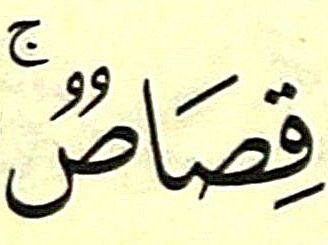 قِصَاصٌ ۚ